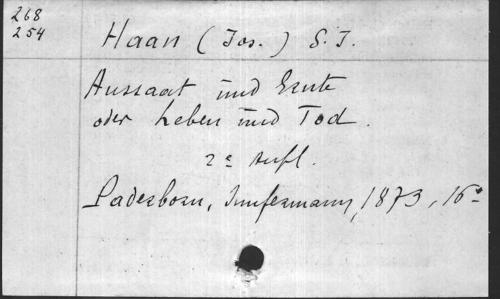 268
254
Haan (Jos.) S.J.
Aussaat und Ernte
oder Leben und Tod.
2e Aufl.
Paderborn, Junfermann, 1873, 16°